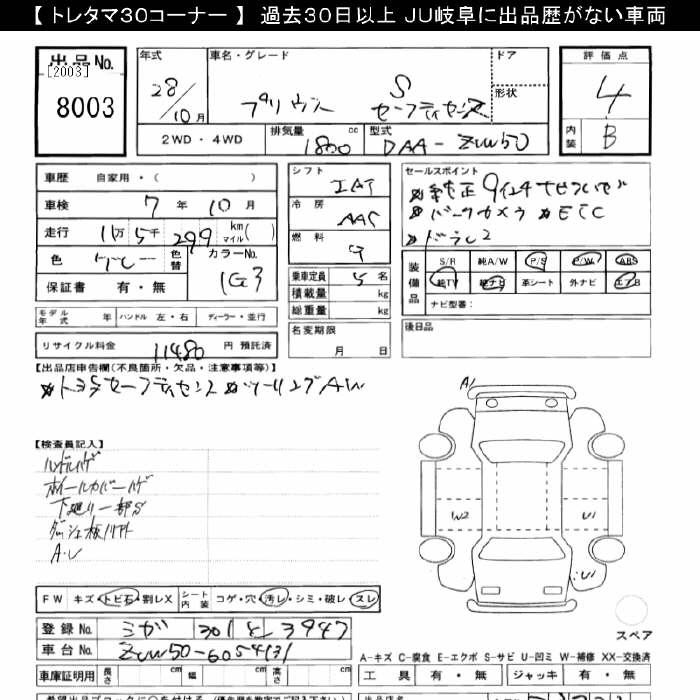 【 トレタマ30コーナー 】 過去30日以上 JU岐阜に出品歴がない車両
出品No. 年式 車名・グレード ドア 評価点
[2003] 28 S 形状 4
8003 10月 プリウス セーフティセンス
2WD・4WD 排気量 1800 cc 型式 DAA-ZVW50 内装 B
車歴 自家用・( ) シフト IAT セールスポイント
車検 7年10月 冷房 AAC 純正9インチナビ
走行 11万5千299 km マイル( ) 燃料 バックカメラ ETC
色 グレー 色替 カラーNo. 1G3 ドラレコ
保証書 有・無 乗車定員 5名
積載量 kg
総重量 kg
装備品 S/R 純A/W P/S P/W ABS
純TV 純ナビ 革シート 外ナビ エアB
ナビ型番:
モデル年式 年 ハンドル 左・右 ディーラー・並行 名変期限 月 日 後日品
リサイクル料金 11480 円 預託済
【出品店申告欄(不良箇所・欠品・注意事項等)】
トヨタセーフティセンス ツーリングAW
A1
【検査員記入】
ハンドルハゲ
ホイールカバーハゲ
下廻り一部S
W2 U1
A・U
U1
FW キズ・トビ石・割レX シート内装 コゲ・穴・汚レ・シミ・破レ・スレ
スペア
登録No. 301 3947
車台No. ZVW50-6054131
A-キズ C-腐食 E-エクボ S-サビ U-凹ミ W-補修 XX-交換済
車庫証明用 長さ cm 幅 cm 高さ cm 工具 有・無 ジャッキ 有・無